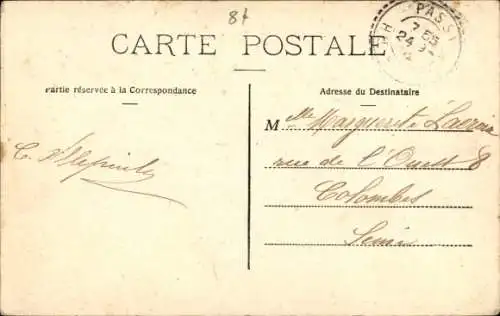 84
CARTE POSTALE
PASSY
7 55
24
Partie réservée à la Correspondance
Adresse du Destinataire
Mlle Marguerite Lacroix
rue de l'Ouest 8
Colombes
Seine
C.